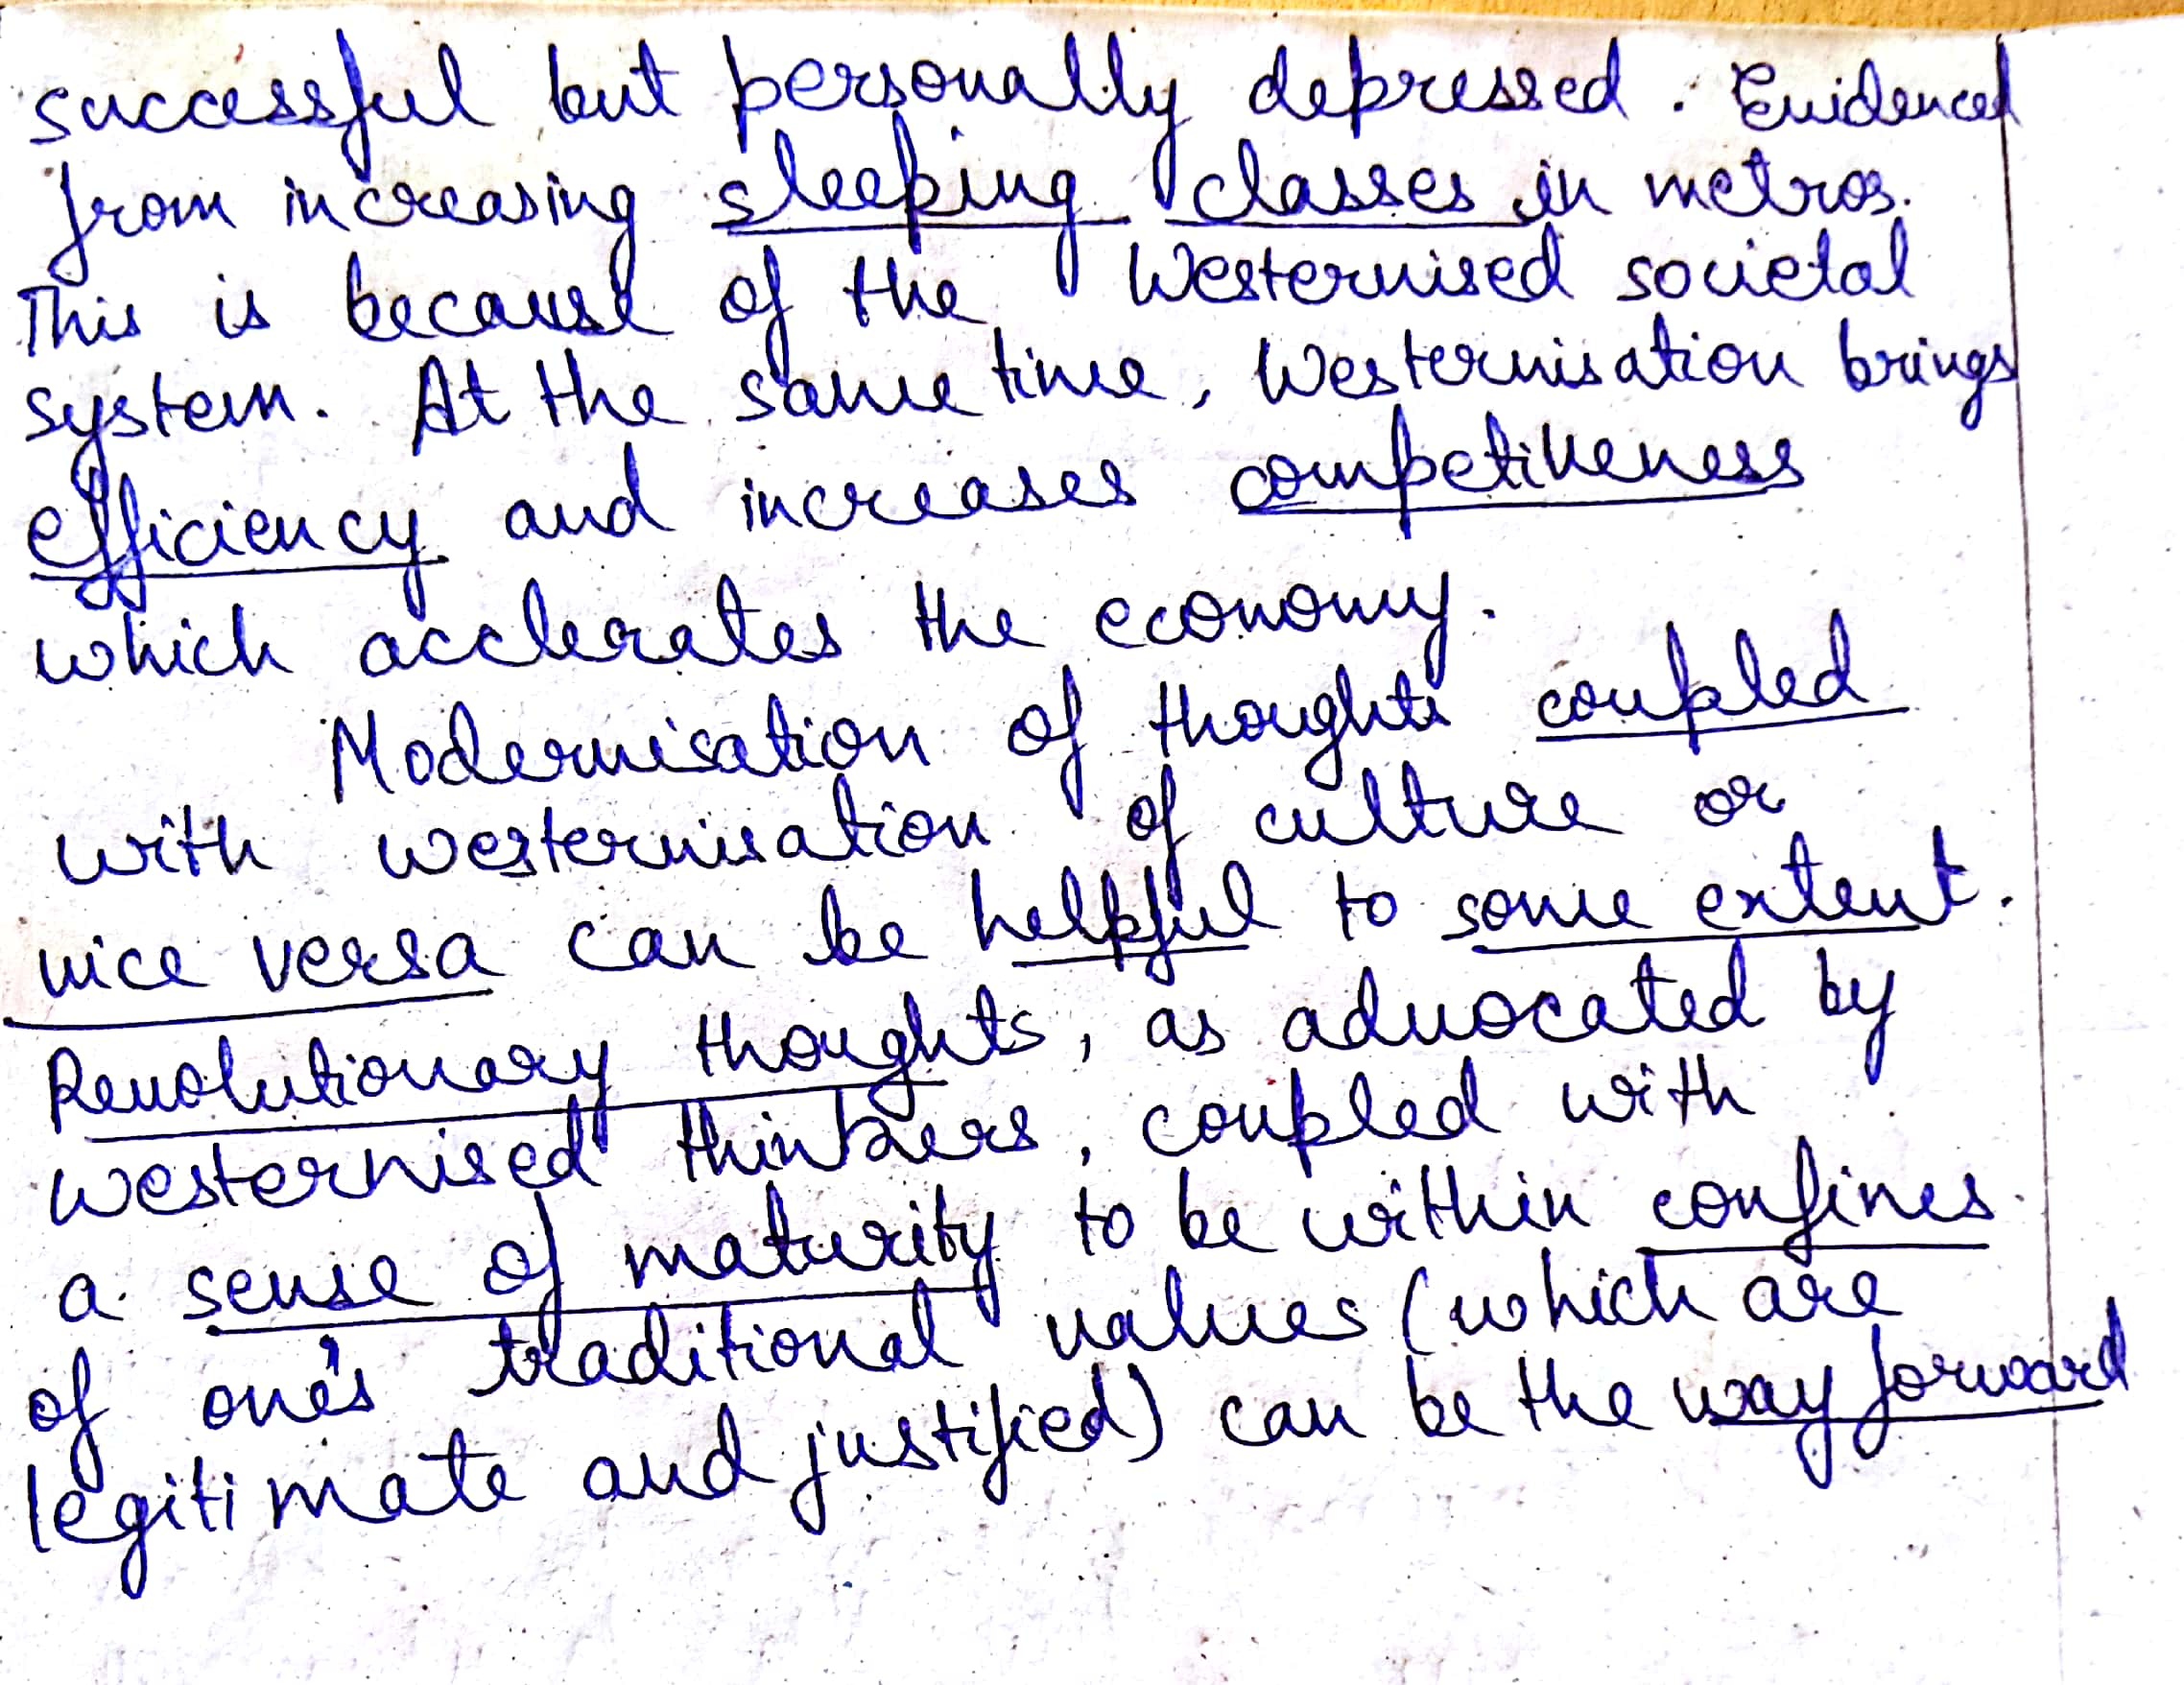 successful but personally depressed. Evidenced
from increasing sleeping classes in metros.
This is because of the Westernised societal
system. At the same time, Westernisation brings
efficiency and increases competiveness
which acclerates the economy.
Modernisation of thoughts coupled
with westernisation of culture or
vice versa can be helpful to some extent.
Revolutionary thoughts, as advocated by
westernised thinkers, coupled with
a sense of maturity to be within confines
of one's traditional values (which are
legitimate and justified) can be the way forward